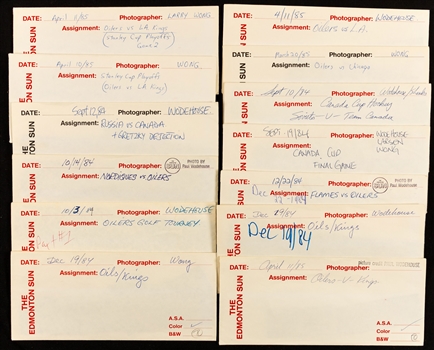 DATE: April 11/85 Photographer: LARRY WONG
Assignment: Oilers vs L.A. Kings
(Stanley Cup Playoffs
Game 2)
THE EDMONTON SUN
DATE: April 10/85 Photographer: WONG
Assignment: Stanley Cup Playoffs
(Oilers vs LA Kings)
DATE: Sept 12 84 Photographer: WODEHOUSE
Assignment: RUSSIA vs CANADA
+ GRETZKY DEJECTION
DATE: 10/14/84
PHOTO BY
Paul Wodehouse
Assignment: NORDIQUES vs OILERS
DATE: Photographer: WODEHOUSE
Assignment: OILERS GOLF TOURNEY
DATE: Dec 19/84 Photographer: Wong
Assignment: Oils/Kings
THE
EDMONTON SUN
A.S.A.
Color
B&W
DATE: 4/11/85 Photographer: WODEHOUSE
Assignment: OILERS vs L.A.
DATE: March 20/85 Photographer: WONG
Assignment: Oilers vs Chicago
DATE: Sept 10/84 Photographer:
Assignment: Canada Cup Hockey
Soviets -V- Team Canada
DATE: SEPT 19/84 Photographer: WODEHOUSE
LARSEN
WONG
Assignment: CANADA CUP
FINAL GAME
DATE: 12/22/84
Assignment: FLAMES vs OILERS
DATE: Dec 19/84 Photographer: Wodehouse
Assignment: Oils/Kings
Dec 19/84
DATE: April 11/85
Assignment: Oilers -V- Kings
THE
EDMONTON SUN
A.S.A.
Color
B&W